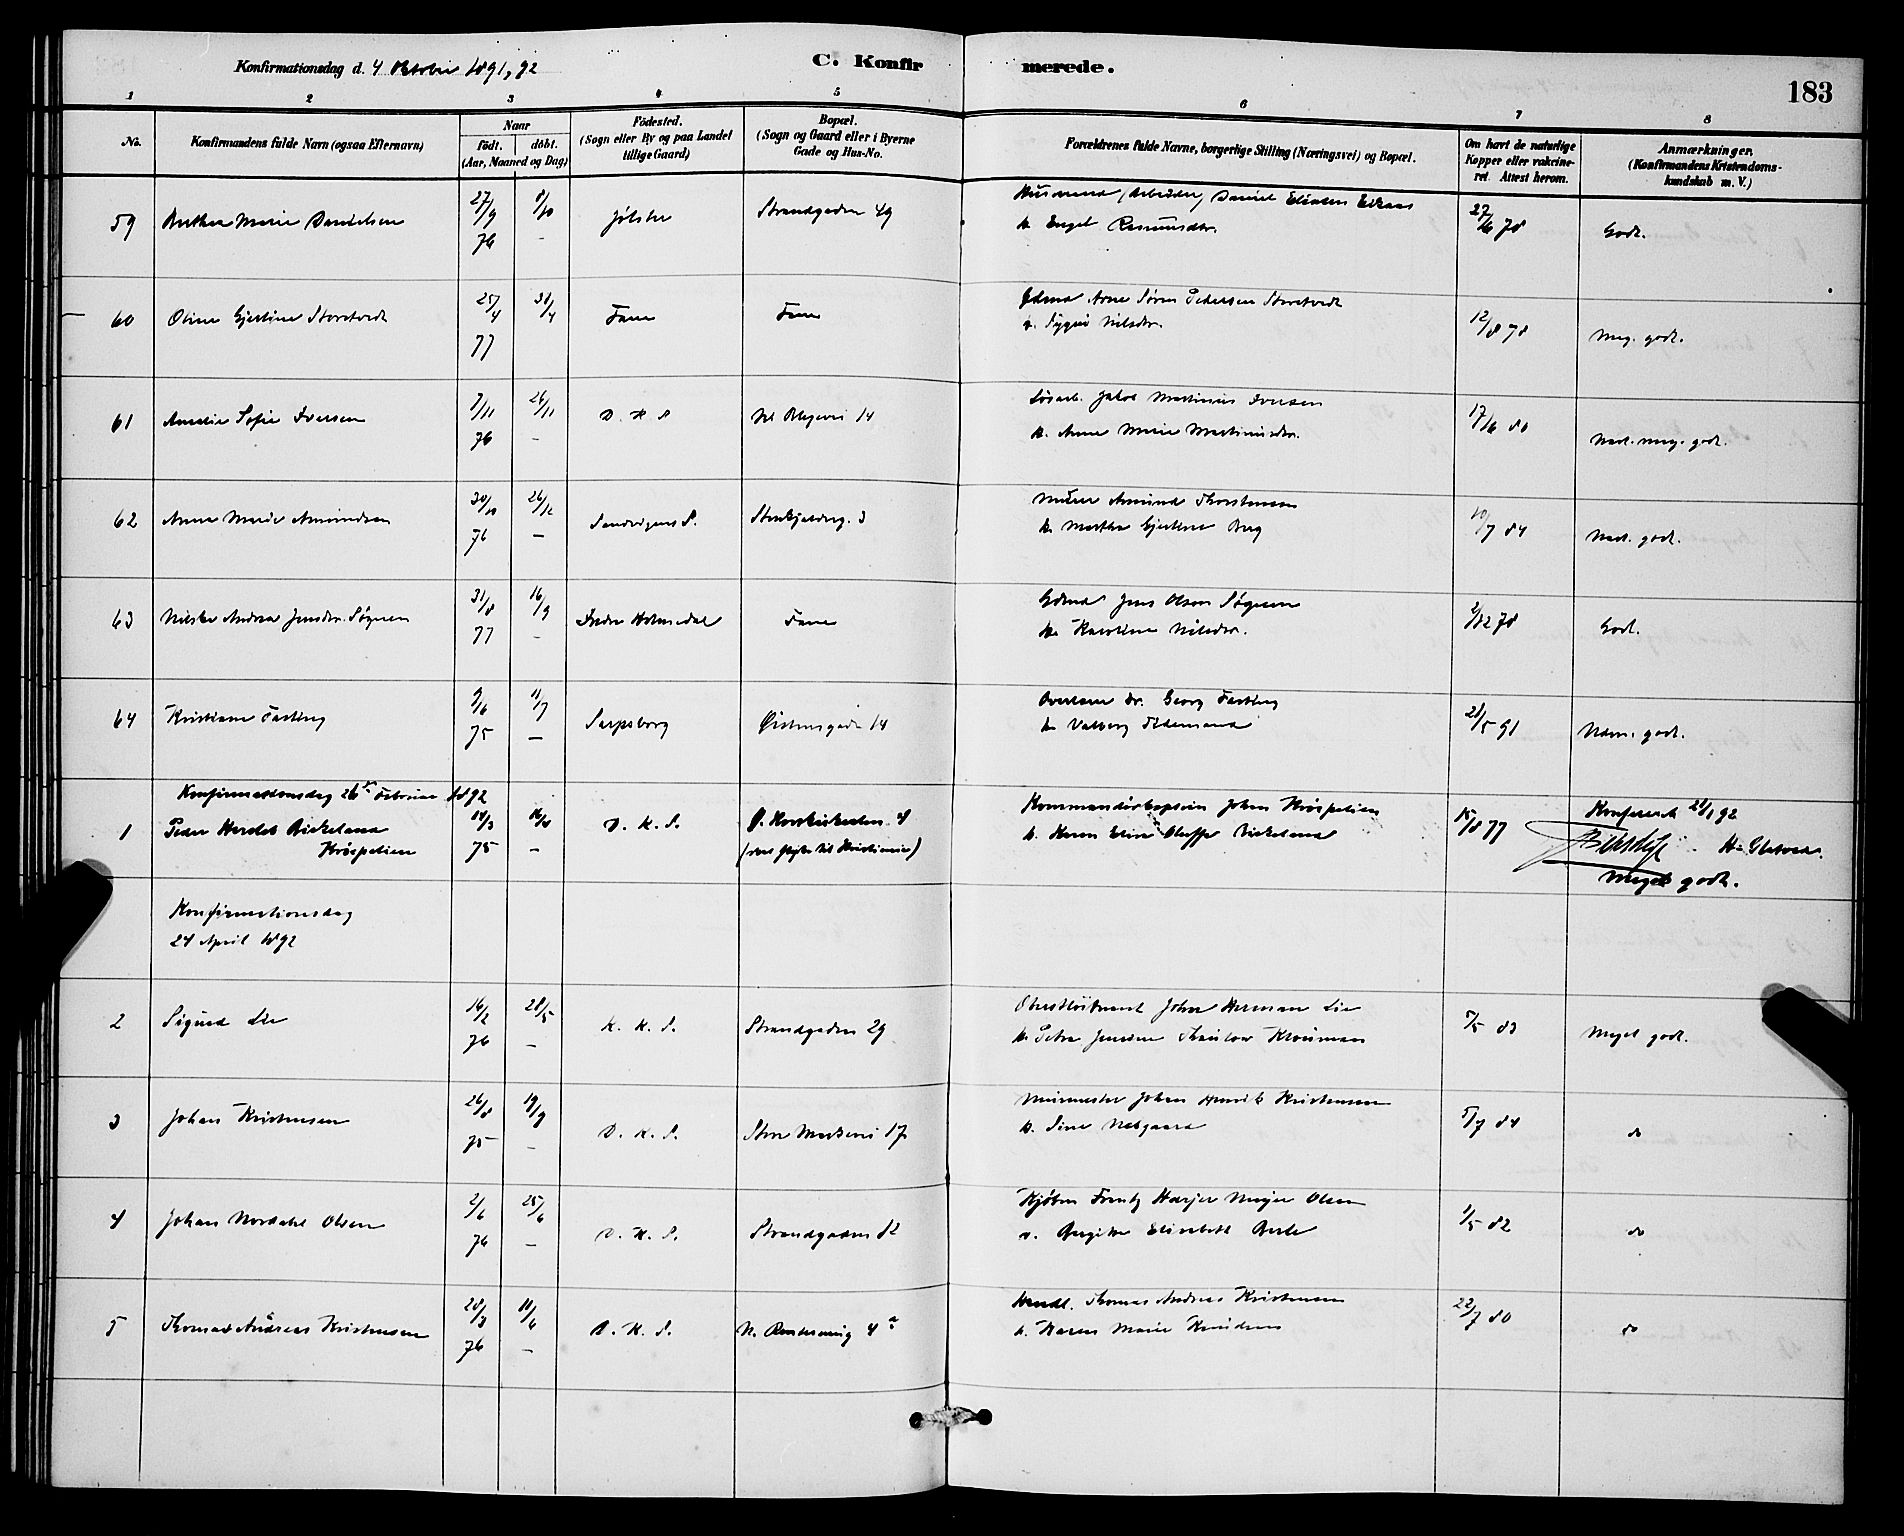 Konfirmationsdag d. 4 Oktober 1891, 92
C. Konfirmerede.
183
1 2 3 4 5 6 7 8
No.
Konfirmandens fulde Navn (ogsaa Efternavn)
Naar
födt. döbt.
(Aar, Maaned og Dag)
Födested.
(Sogn eller By og paa Landet
tillige Gaard)
Bopæl.
(Sogn og Gaard eller i Byerne
Gade og Hus-No.
Forældrenes fulde Navne, borgerlige Stilling (Næringsvei) og Bopæl.
Om havt de naturlige
Kopper eller vakcine-
ret. Attest herom.
Anmærkninger.
(Konfirmandens Kristendoms-
kundskab m. V.)
59 Berthea Marie Danielsen 27/9 76 8/10 - Jølster Strandgaden 49
Husmand (Arbeider) Daniel
k. Engel Rasmusdtr. 27/6 78 Godt.
60 Oline Gjertine Storetvedt 25/4 77 30/4 Fane Fane
Gdmd Arne Søren Pedersen Storetvedt
Nilsdtr. 12/8 78 Meg. godt.
61 Amalie Sofie Iversen 7/11 76 26/11 - D. K. S 14
Løsarb. Jakob Martinius Iversen
k. Anne Marie Martinusdtr. 17/6 80 Næst. meg. godt.
62 Anna Marie Amundsen 30/10 76 26/12 - Sandvigens S. 3
Murer Amund Thorstensen
k. Marthe Gjertine Berg 10/7 84 Næst. godt.
63 Andrea Jensdtr. Søgnen 31/8 77 16/9 - Indre Holmedal Fane
Gdmd Jens Olsen Søgnen
k. Karoline Nilsdtr. 2/12 78 Godt.
64 Kristiane Fasting 9/6 75 11/7 - Sarpsborg Øistensgade 14
Overlærer Dr. Georg Fasting
k. Valborg Tidemand 21/5 91 Udm. godt.
Konfirmationsdag 26de Februar 1892
1 Peder Hersleb Birkeland
Kröepelien 14/3 75 - D. K. S. Ø. 4
Kommandörkaptein Johan Kröepelien
k. Karen Elise Birkeland 15/8 77
Meget godt.
Konfirmationsdag
24 April 1892
2 Sigurd Lie 16/2 76 28/5 - K. K. S. Strandgaden 29
Oberstløitnant Johan Herman Lie
k. Petra Jensine Thaulow 5/5 83 Meget godt.
3 Johan Kristensen 26/8 75 19/9 - D. K. S. Store Markevei 17
Murmester Johan Henrik Kristensen
k. Sine Nedgaard 5/7 84 do
4 Johan Nordahl Olsen 2/6 76 25/6 - D. K. S. Strandgaden 82
Kjöbm Frantz Meyer Olsen
k. Birgitte Elisabeth 1/5 82 do
5 Thomas Andreas Kristensen 28/3 76 11/6 - D. K. S. 4 a
Handl. Thomas Andreas Kristensen
k. Karen Marie Knudsen 22/7 80 do